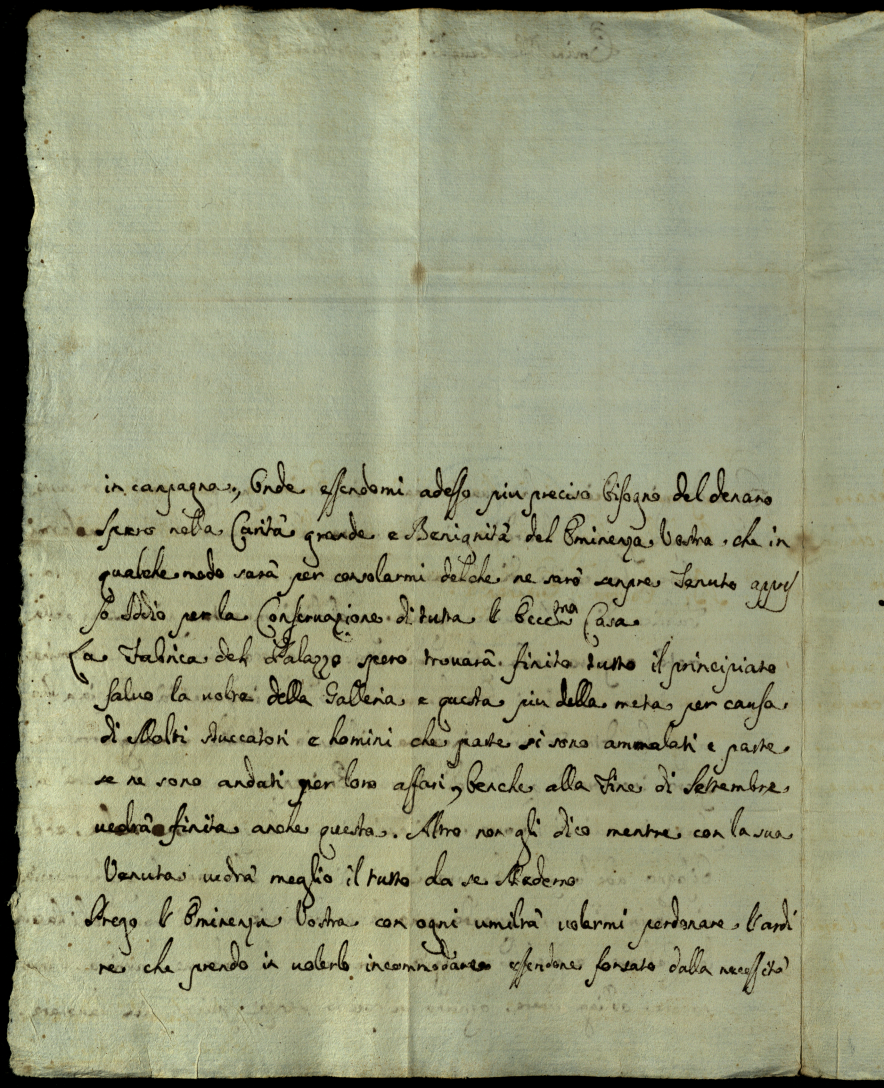 in canpagna, Onde essendomi adesso piu preciso bisogno del denaro
spero nella Carità grande e Benignità del Eminenza Vostra che in
qualche modo sarà per consolarmi delche ne sarò sanpre Tenuto appres
so Iddio per la Conservazione di tutta l' Eccma Casa
La Fabrica del Palazzo spero trouarà finito tutto il principiato
saluo la uolta della Galleria e questa piu della meta per causa
di Molti stuccatori e homini che parte si sono ammalati e parte
se ne sono andati per loro affari, benche alla Fine di Settembre
uedrà finita anche questa. Altro non gli dico mentre con la sua
Venuta uedrà meglio il tutto da se Medemo
Prego l' Eminenza Vostra con ogni umiltà uolermi perdonare l'ardi
re che prendo in uolerlo incommodare essendone forzato dalla necessità